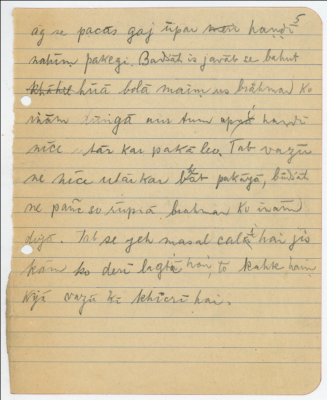 5
āg se pacās gaj ūpar hanḍī
nahīṃ pakegī. Bādśāh is javāb se bahut
khuś hūā bolā maiṃ us brāhman ko
inām dūṅgā aur tum apnī hanḍī
nīce utār kar pakā leo. Tab vazīr
ne nīce utār kar bhāt pakāyā, bādśāh
ne pānc so rūpiā brahman ko inām
diyā. Tab se yeh masal caltī hai jis
kām ko derī lagtā hai, to kahte haiṃ
kyā vazīr kī khicṛī hai.